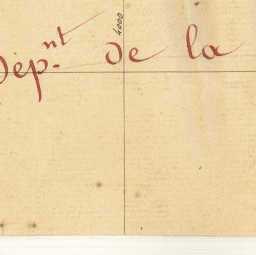 Dépnt de la
4000